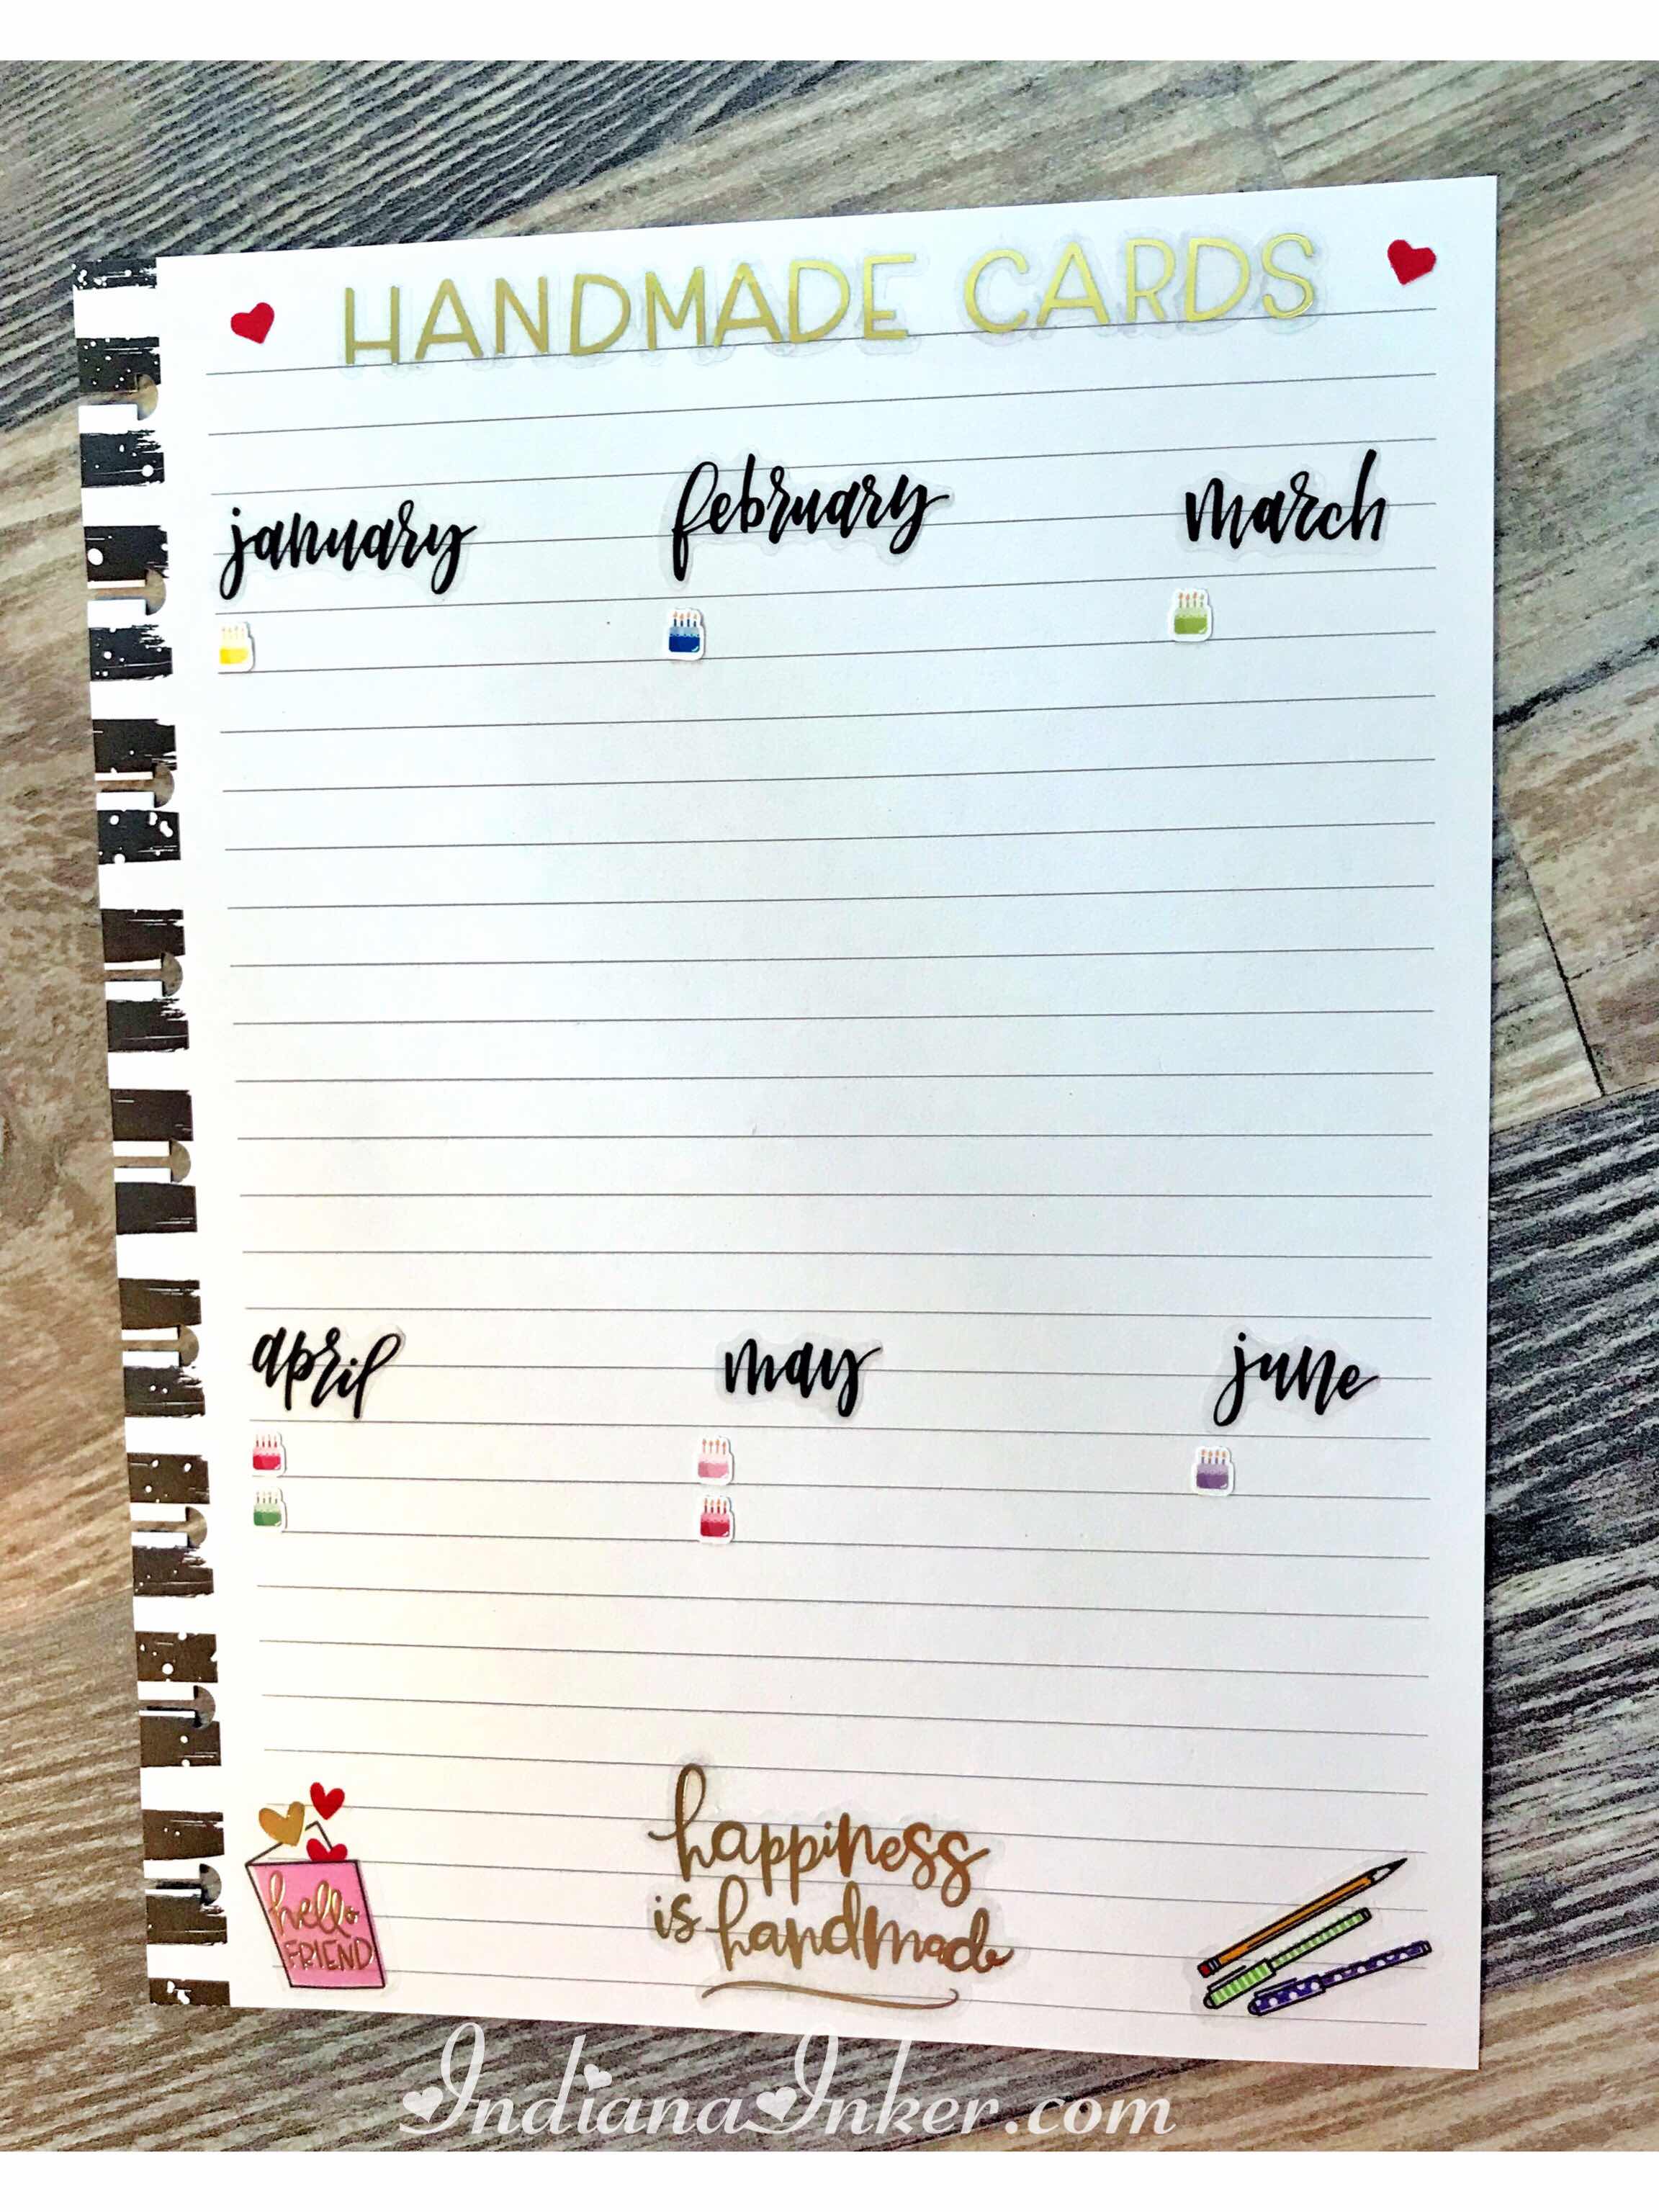 HANDMADE CARDS
january february march
april may june
hello
FRIEND
happiness
is handmade
IndianaInker.com